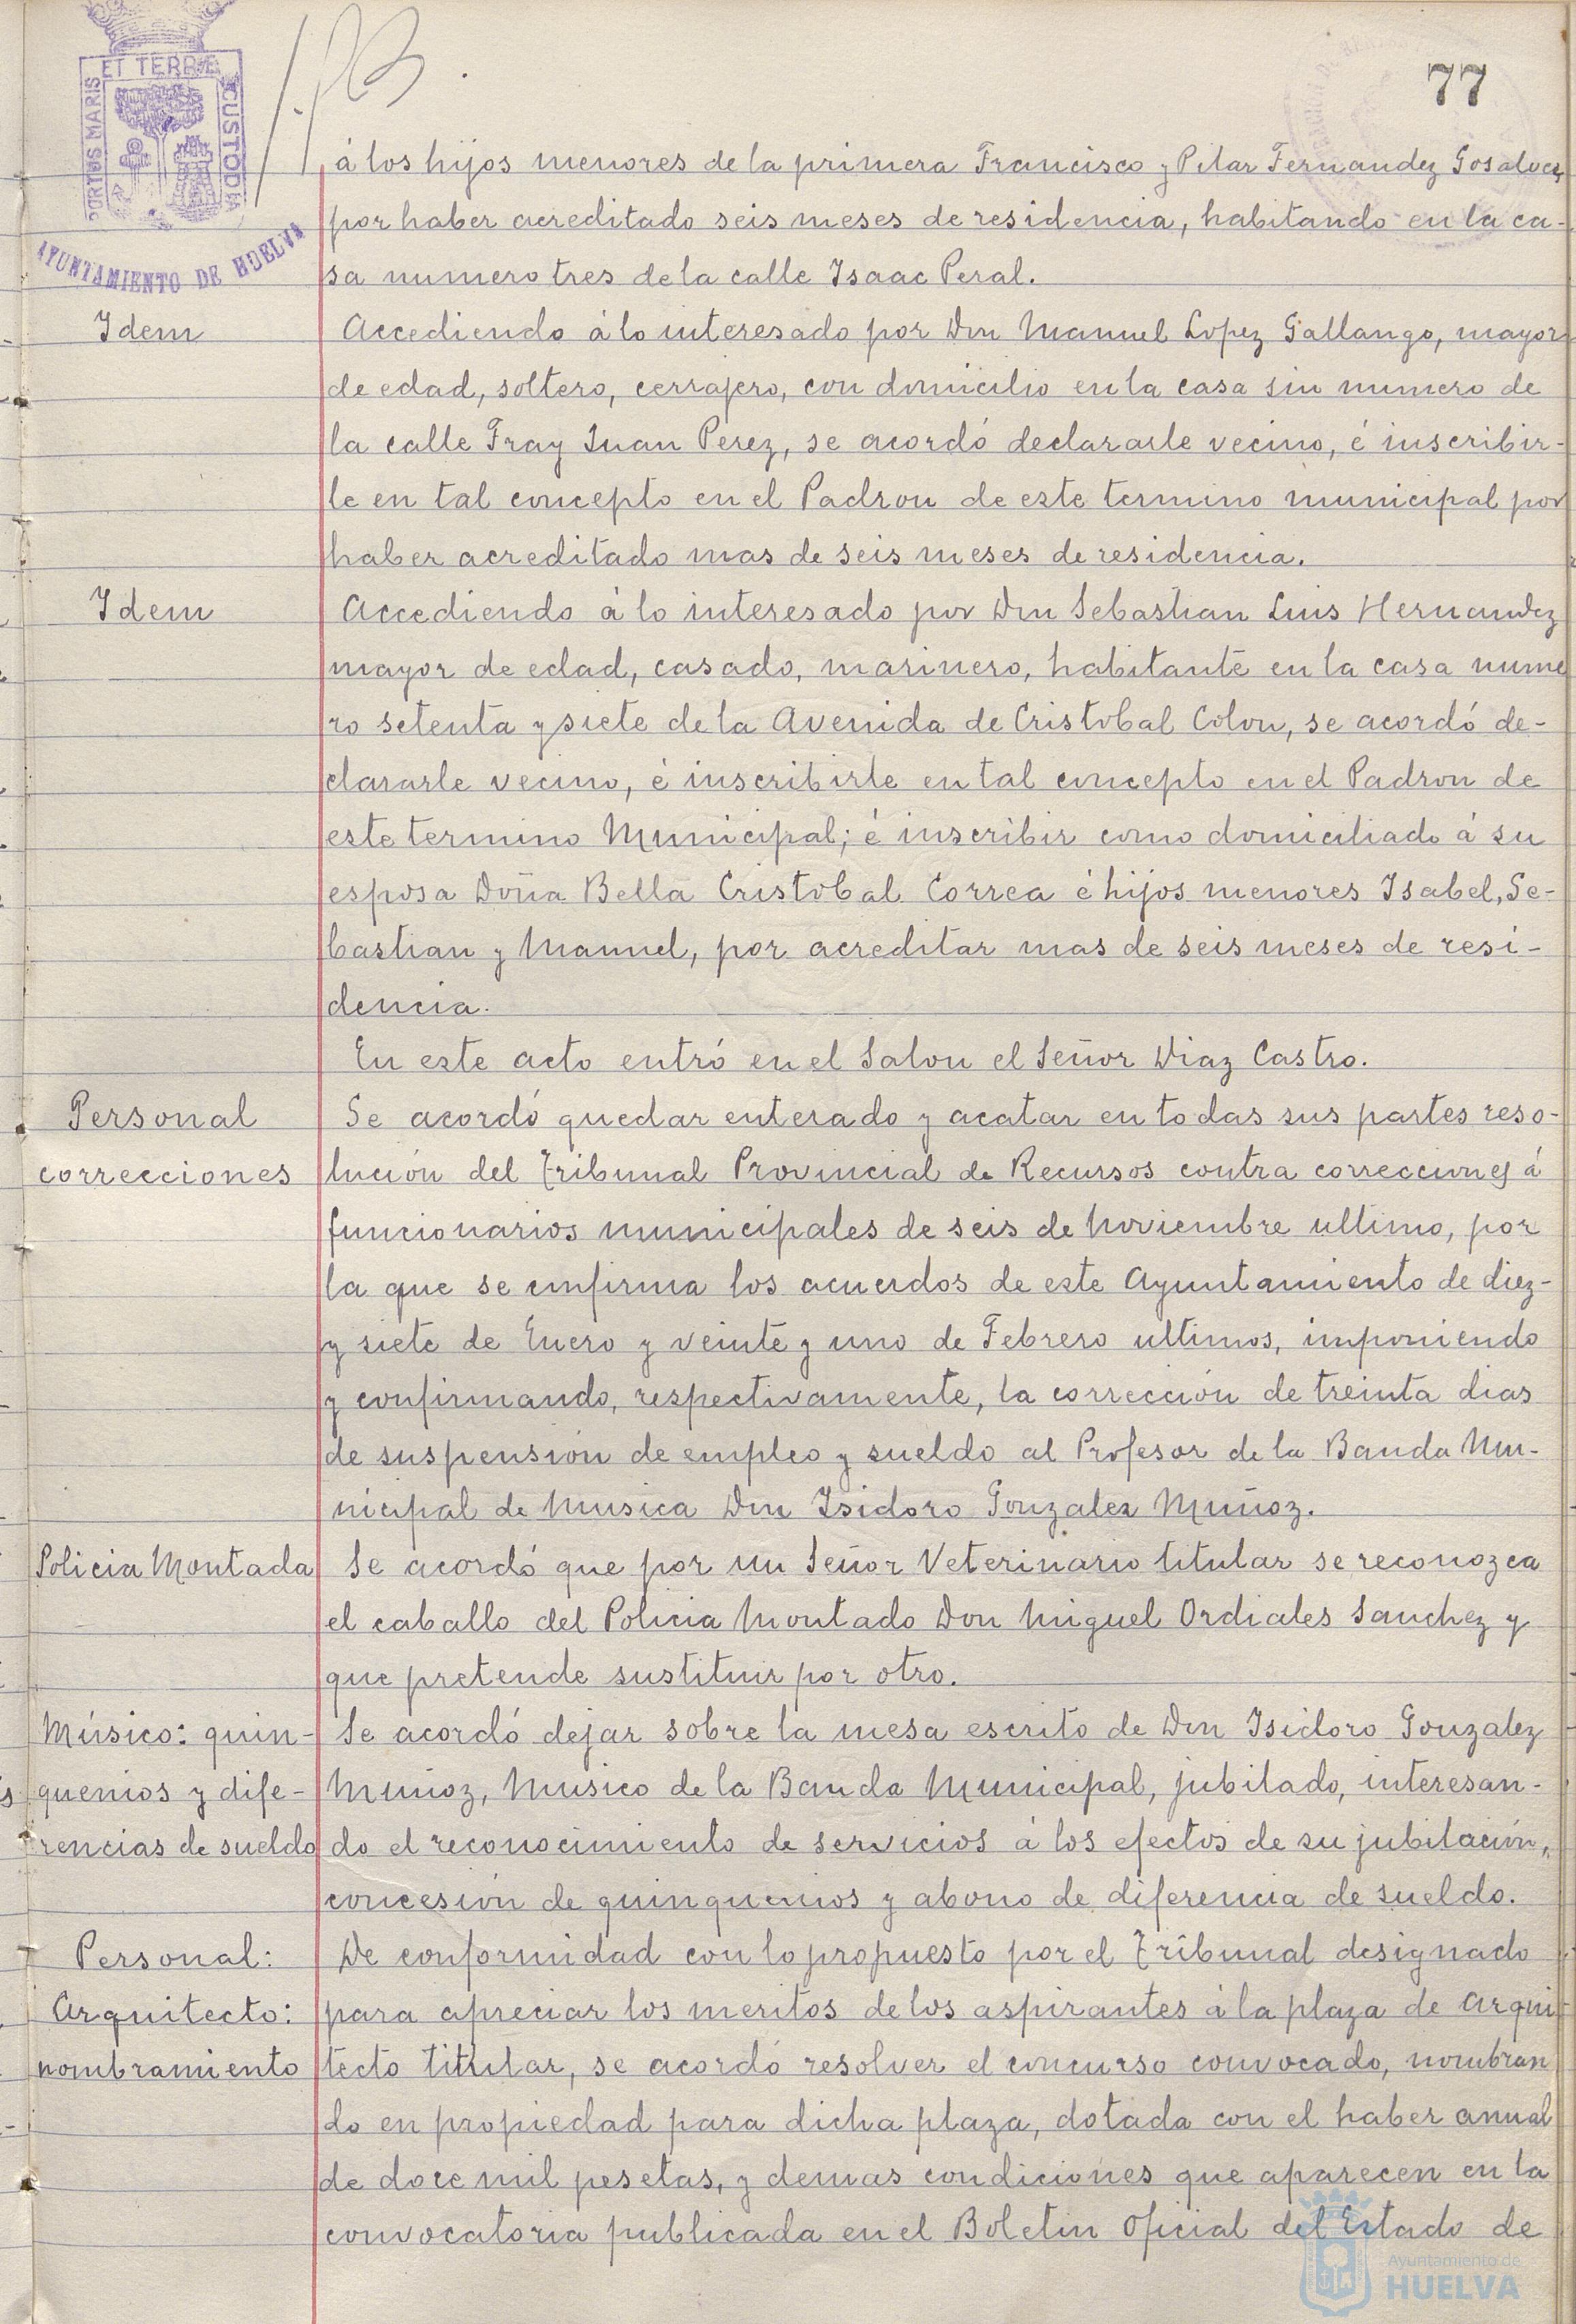 77
ET TERRE
PORTUS MARIS
CUSTODIA
AYUNTAMIENTO DE HUELVA
á los hijos menores de la primera Francisco y Pilar Fernandez Gosalvez,
por haber acreditado seis meses de residencia, habitando en la ca-
sa numero tres de la calle Isaac Peral.
Idem
Accediendo á lo interesado por Don Manuel Lopez Gallango, mayor
de edad, soltero, cerrajero, con domicilio en la casa sin numero de
la calle Fray Juan Perez, se acordó declararle vecino, é inscribir-
le en tal concepto en el Padron de este termino municipal por
haber acreditado mas de seis meses de residencia.
Idem
Accediendo á lo interesado por Don Sebastian Luis Hernandez
mayor de edad, casado, marinero, habitante en la casa nume
ro setenta y siete de la Avenida de Cristobal Colon, se acordó de-
clararle vecino, é inscribirle en tal concepto en el Padron de
este termino Municipal; é inscribir como domiciliado á su
esposa Doña Bella Cristobal Correa é hijos menores Isabel, Se-
bastian y Manuel, por acreditar mas de seis meses de resi-
dencia.
En este acto entró en el Salon el Señor Diaz Castro.
Personal
correcciones
Se acordó quedar enterado y acatar en todas sus partes reso-
lución del Tribunal Provincial de Recursos contra correcciones á
funcionarios municipales de seis de Noviembre ultimo, por
la que se confirma los acuerdos de este Ayuntamiento de diez-
y siete de Enero y veinte y uno de Febrero ultimos, imponiendo
y confirmando, respectivamente, la corrección de treinta dias
de suspensión de empleo y sueldo al Profesor de la Banda Mu-
nicipal de Musica Don Isidoro Gonzalez Muñoz.
Policia Montada
Se acordó que por un Señor Veterinario titular se reconozca
el caballo del Policia Montado Don Miguel Ordiales Sanchez y
que pretende sustituir por otro.
Músico: quin-
quenios y dife-
rencias de sueldo
Se acordó dejar sobre la mesa escrito de Don Isidoro Gonzalez
Muñoz, Musico de la Banda Municipal, jubilado, interesan-
do el reconocimiento de servicios á los efectos de su jubilación,
concesión de quinquenios y abono de diferencia de sueldo.
Personal:
Arquitecto:
nombramiento
De conformidad con lo propuesto por el Tribunal designado
para apreciar los meritos de los aspirantes á la plaza de Arqui
tecto titular, se acordó resolver el concurso convocado, nombran
do en propiedad para dicha plaza, dotada con el haber anual
de doce mil pesetas, y demas condiciones que aparecen en la
convocatoria publicada en el Boletin Oficial del Estado de
Ayuntamiento de
HUELVA